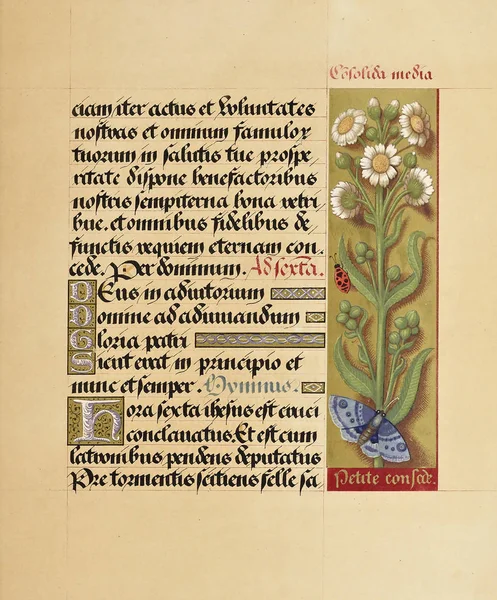 Cōsolida media
ciam iter actus et voluntates
nostras et omnium famulor
tuorum in salutis tue prospe
ritate dispone benefactoribus
nostris sempiterna bona retri
bue. et omnibus fidelibus de
functis requiem eternam con
cede. Per dominum. Ad sexta.
Deus in adiutorium
Domine ad adiuuandum
Gloria patri
Sicut erat in principio et
nunc et semper. Hymnus.
Hora sexta ihesus est cruci
conclauatus. Et est cum
latronibus pendens deputatus
Pre tormentis sitiens felle sa
Petite consde.